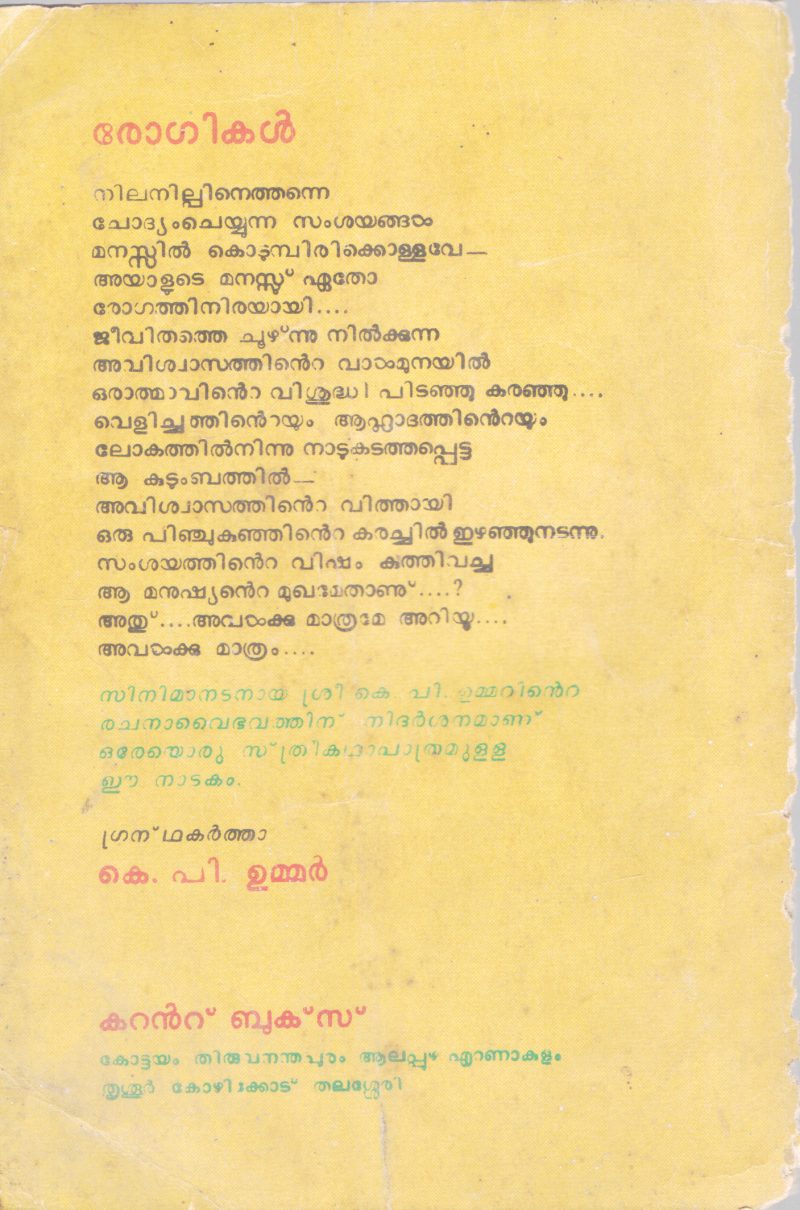 രോഗികൾ
നിലനില്പിനെത്തന്നെ
ചോദ്യംചെയ്യുന്ന സംശയങ്ങൾ
മനസ്സിൽ കൊടുമ്പിരിക്കൊള്ളവേ—
അയാളുടെ മനസ്സ് ഏതോ
രോഗത്തിനിരയായി....
ജീവിതത്തെ ചൂഴ്ന്നു നിൽക്കുന്ന
അവിശ്വാസത്തിൻെറ വാൾമുനയിൽ
ഒരാത്മാവിൻെറ വിശുദ്ധി പിടഞ്ഞു കരഞ്ഞു....
വെളിച്ചത്തിൻെറയും ആഹ്ലാദത്തിൻെറയും
ലോകത്തിൽനിന്നു നാടുകടത്തപ്പെട്ട
ആ കുടുംബത്തിൽ—
അവിശ്വാസത്തിൻെറ വിത്തായി
ഒരു പിഞ്ചുകുഞ്ഞിൻെറ കരച്ചിൽ ഇഴഞ്ഞുനടന്നു.
സംശയത്തിൻെറ വിഷം കുത്തിവച്ച
ആ മനുഷ്യൻെറ മുഖമേതാണു്....?
അതു്....അവൾക്കു മാത്രമേ അറിയൂ....
അവൾക്കു മാത്രം....
സിനിമാനടനായ ശ്രീ കെ. പി. ഉമ്മറിൻെറ
രചനാവൈഭവത്തിന് നിദർശനമാണ്
ഒരേയൊരു സ്ത്രീകഥാപാത്രമുളള
ഈ നാടകം.
ഗ്രന്ഥകർത്താ
കെ. പി. ഉമ്മർ
കറൻറ് ബുക്സ്
കോട്ടയം തിരുവനന്തപുരം ആലപ്പുഴ എറണാകുളം
തൃശൂർ കോഴിക്കോട് തലശ്ശേരി